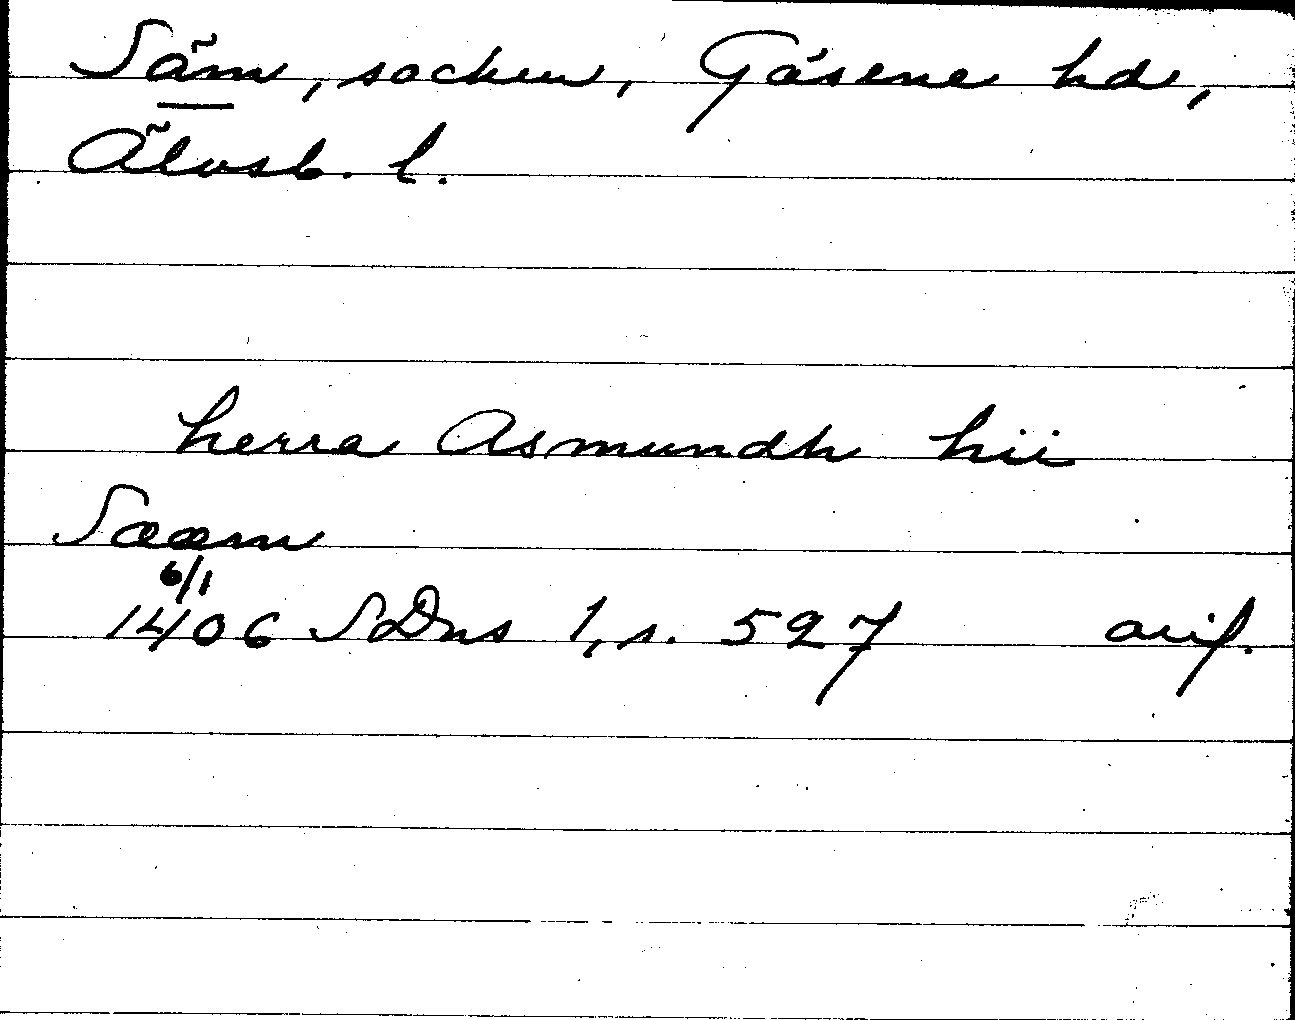 Säm, socken, Gäsene hd,
Älvsb. l.
herra Asmundh hii
Sææm
6/1
1406 SDns 1, s. 597 avskr.